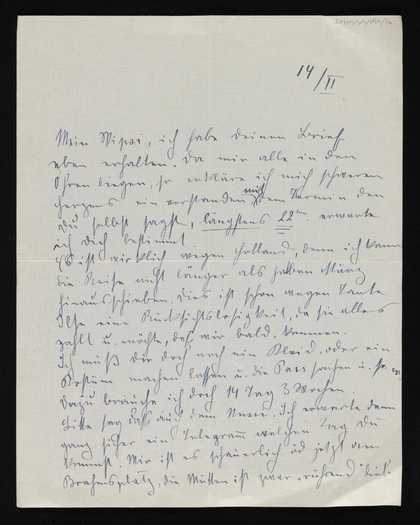 14/II
Mein Wipsi, ich habe deinen Brief
eben erhalten. Da mir alle in den
Ohren liegen, so erkläre ich mich schweren
Herzens einverstanden mit dem Termin den
du selbst sagst, längstens 22ten erwarte
ich dich bestimmt.
Es ist wirklich wegen Holland, denn ich kann
die Reise nicht länger als halben März
hinausschieben. Dies ist schon wegen Tante
Ilse eine Rücksichtslosigkeit, da sie alles
zahlt u. möchte, daß wir bald kommen.
Ich muß dir doch auch ein Kleid oder ein
Kostüm machen lassen u. die Pass i.
dazu brauche ich doch 14 Tag 3 Wochen
Bitte sag das auch dem. Ich erwarte dann
ganz sicher ein Telegramm welchen Tag du
kommst. Mir ist es schauerlich öd jetzt am
Brahmsplatz, die ist zwar rührend